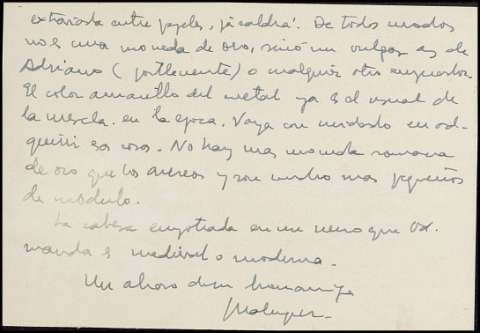 extraviada entre papeles, ya caldrá. De todos modos
no es una moneda de oro, sinó un vulgar as de
Adriano (posiblemente) o cualquier otro emperador.
El color amarillo del metal ya es el usual de
la mezcla en la época. Vaya con cuidado en ad-
quirir esas cosas. No hay mas moneda romana
de oro que los aureos y son mucho mas pequeños
de módulo.
La cabeza empotrada en un muro que Vd.
manda es medieval o moderna.
Un abrazo de su buen amigo